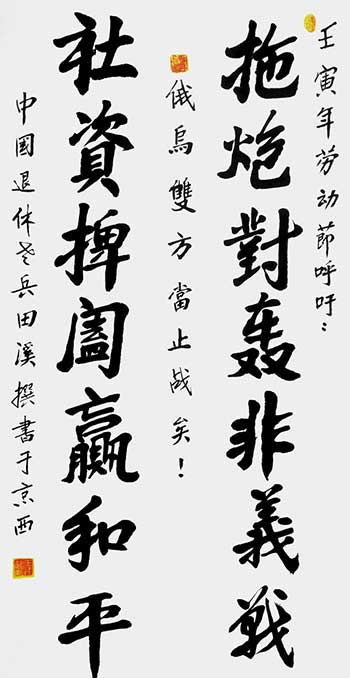 壬寅年劳动節呼吁：
拖炮對轰非義戰
俄烏雙方當止战矣！
社資捭阖赢和平
中國退休老兵田溪撰書于京西